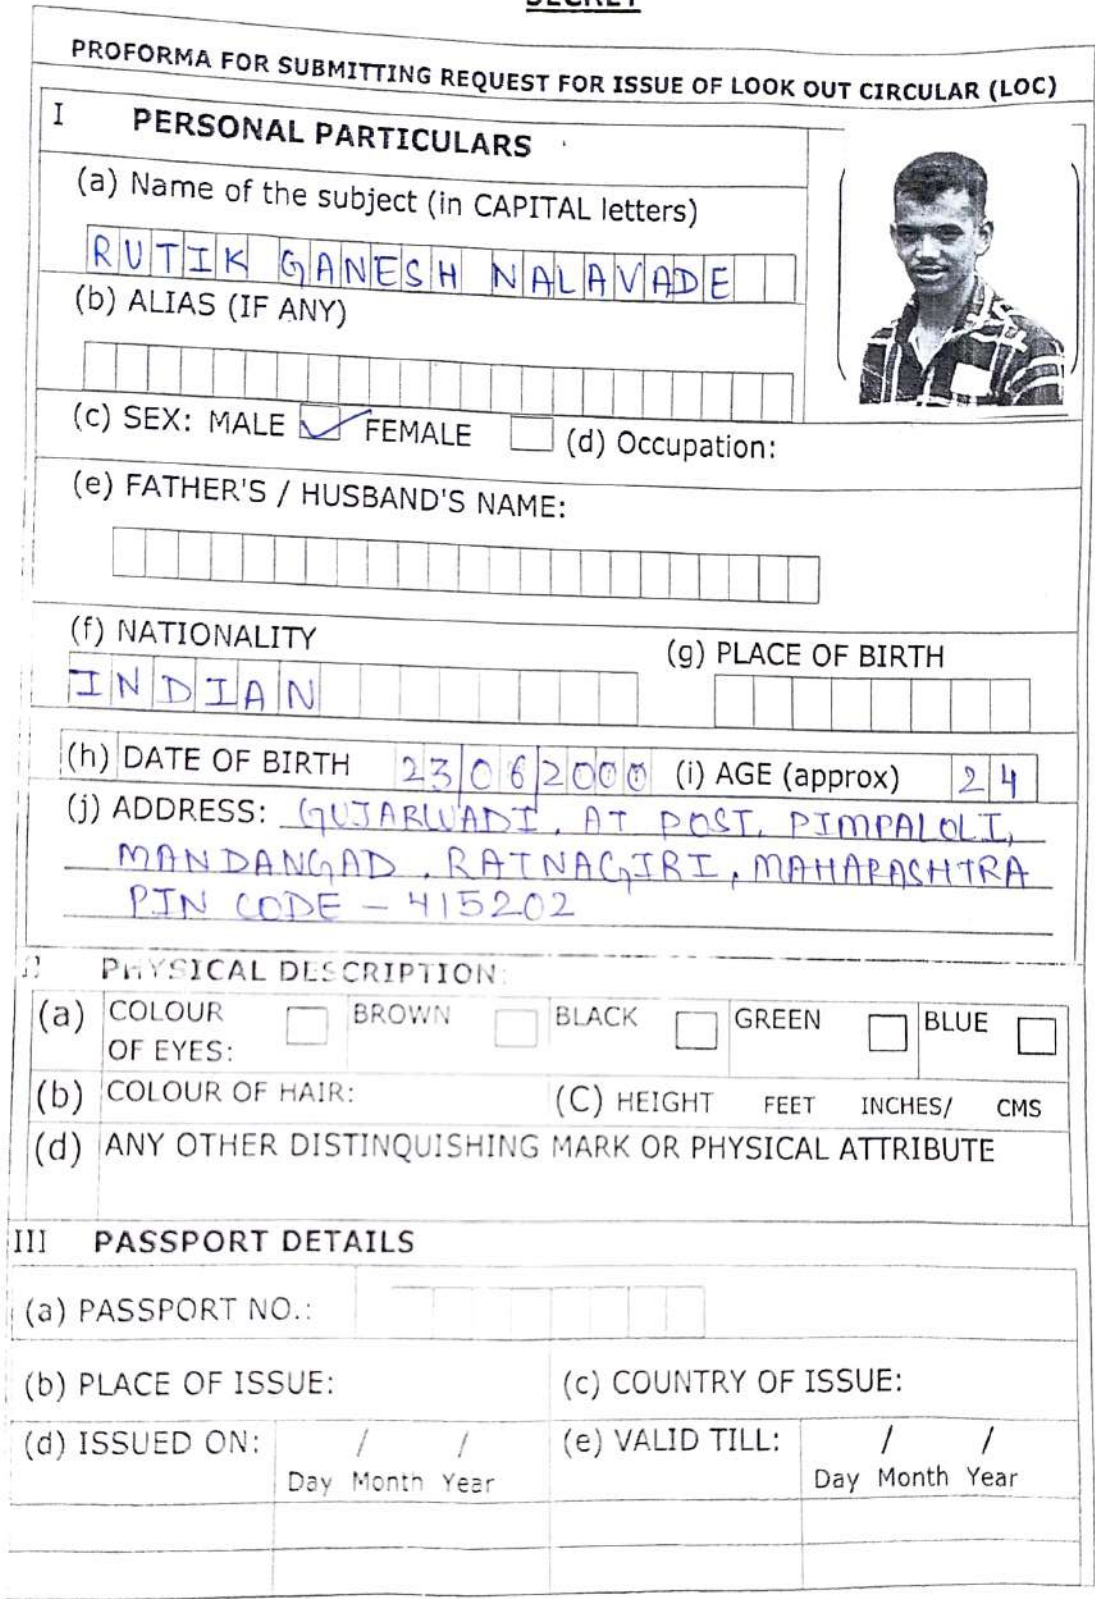 SECRET
PROFORMA FOR SUBMITTING REQUEST FOR ISSUE OF LOOK OUT CIRCULAR (LOC)
I PERSONAL PARTICULARS
(a) Name of the subject (in CAPITAL letters)
RUTIK GANESH NALAVADE
(b) ALIAS (IF ANY)
(c) SEX: MALE FEMALE (d) Occupation:
(e) FATHER'S / HUSBAND'S NAME:
(f) NATIONALITY (g) PLACE OF BIRTH
INDIAN
(h) DATE OF BIRTH 23062000 (i) AGE (approx) 24
(j) ADDRESS: GUJARWADI, AT POST, PIMPALOLI,
MANDANGAD, RATNAGIRI, MAHARASHTRA
PIN CODE - 415202
II PHYSICAL DESCRIPTION:
(a) COLOUR OF EYES: BROWN BLACK GREEN BLUE
(b) COLOUR OF HAIR: (C) HEIGHT FEET INCHES/ CMS
(d) ANY OTHER DISTINQUISHING MARK OR PHYSICAL ATTRIBUTE
III PASSPORT DETAILS
(a) PASSPORT NO.:
(b) PLACE OF ISSUE: (c) COUNTRY OF ISSUE:
(d) ISSUED ON: / / (e) VALID TILL: / /
Day Month Year Day Month Year